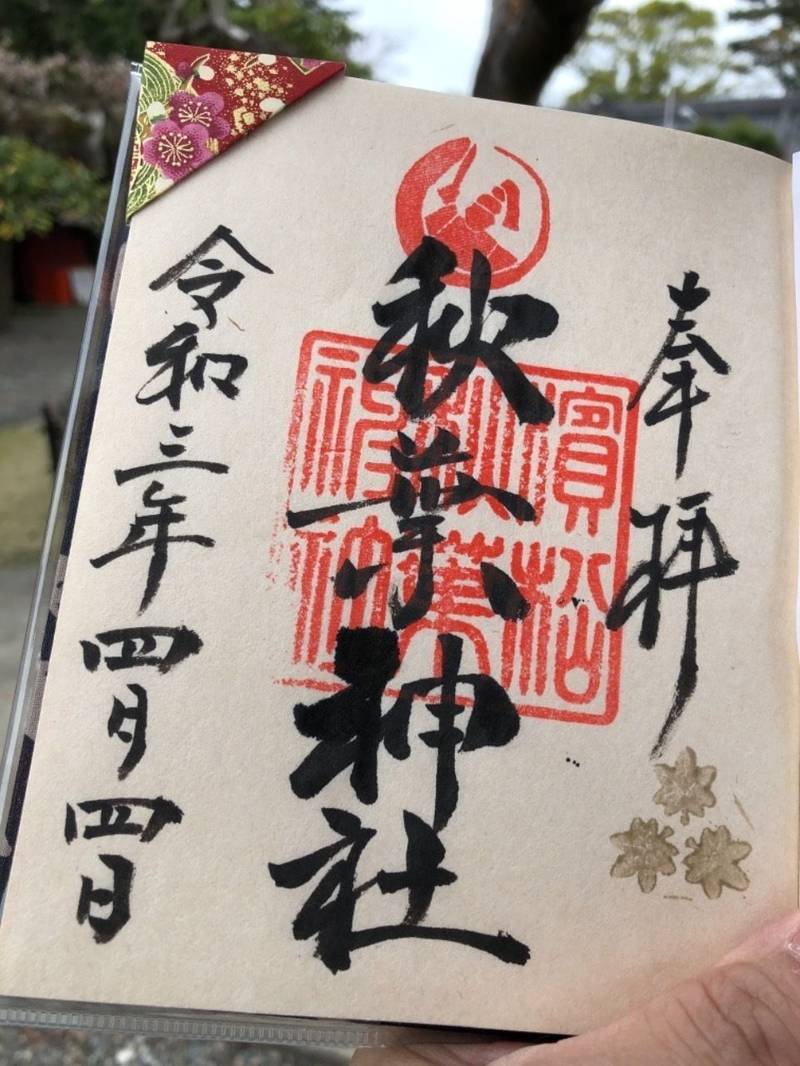 奉拝
濱松
秋葉
神社
秋葉神社
令和三年四月四日